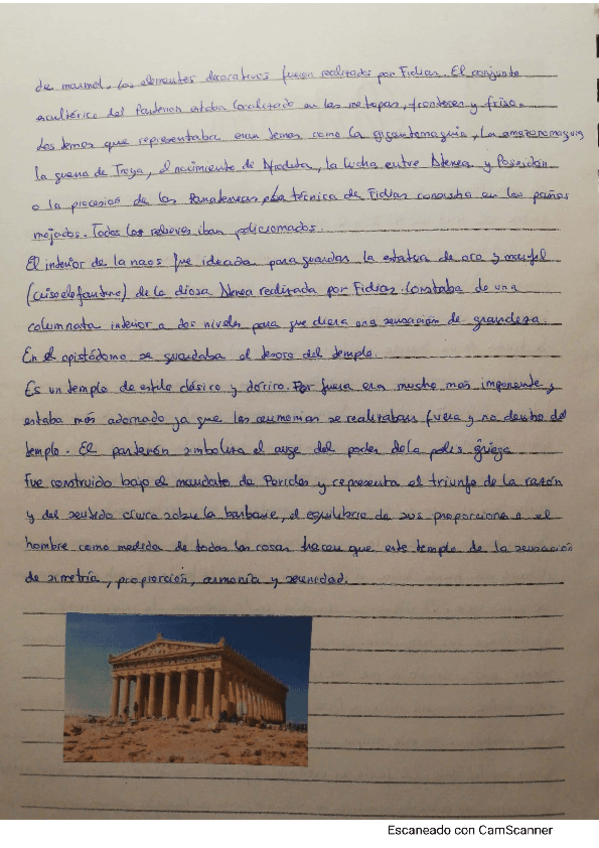 de marmol. Los elementos decorativos fueron realizados por Fidias. El conjunto
escultórico del Partenon estaba localizado en las metopas, frontones y friso.
Los temas que representaba eran temas como la gigantomaquia, la amazonomaquia
la guerra de Troya, el nacimiento de Afrodita, la lucha entre Atenea y Poseidón
o la procesion de las Panateneas, la técnica de Fidias consistia en los paños
mojados. Todos los relieves iban policromados.
El interior de la naos fue ideada para guardar la estatua de oro y marfil
(crisoelefantina) de la diosa Atenea realizada por Fidias. Constaba de una
columnata interior a dos niveles para que diera una sensación de grandeza.
En el opistódomo se guardaba el tesoro del templo.
Es un templo de estilo clásico y dórico. Por fuera era mucho mas imponente y
estaba más adornado ya que las ceremonias se realizaban fuera y no dentro del
templo. El partenón simboliza el auge del poder de la polis griega
Fue construido bajo el mandato de Pericles y representa el triunfo de la razón
y del sentido cívico sobre la barbarie, el equilibrio de sus proporciones el
hombre como medida de todas las cosas hacen que este templo de la sensación
de simetría, proporción, armonía y serenidad.
Escaneado con CamScanner